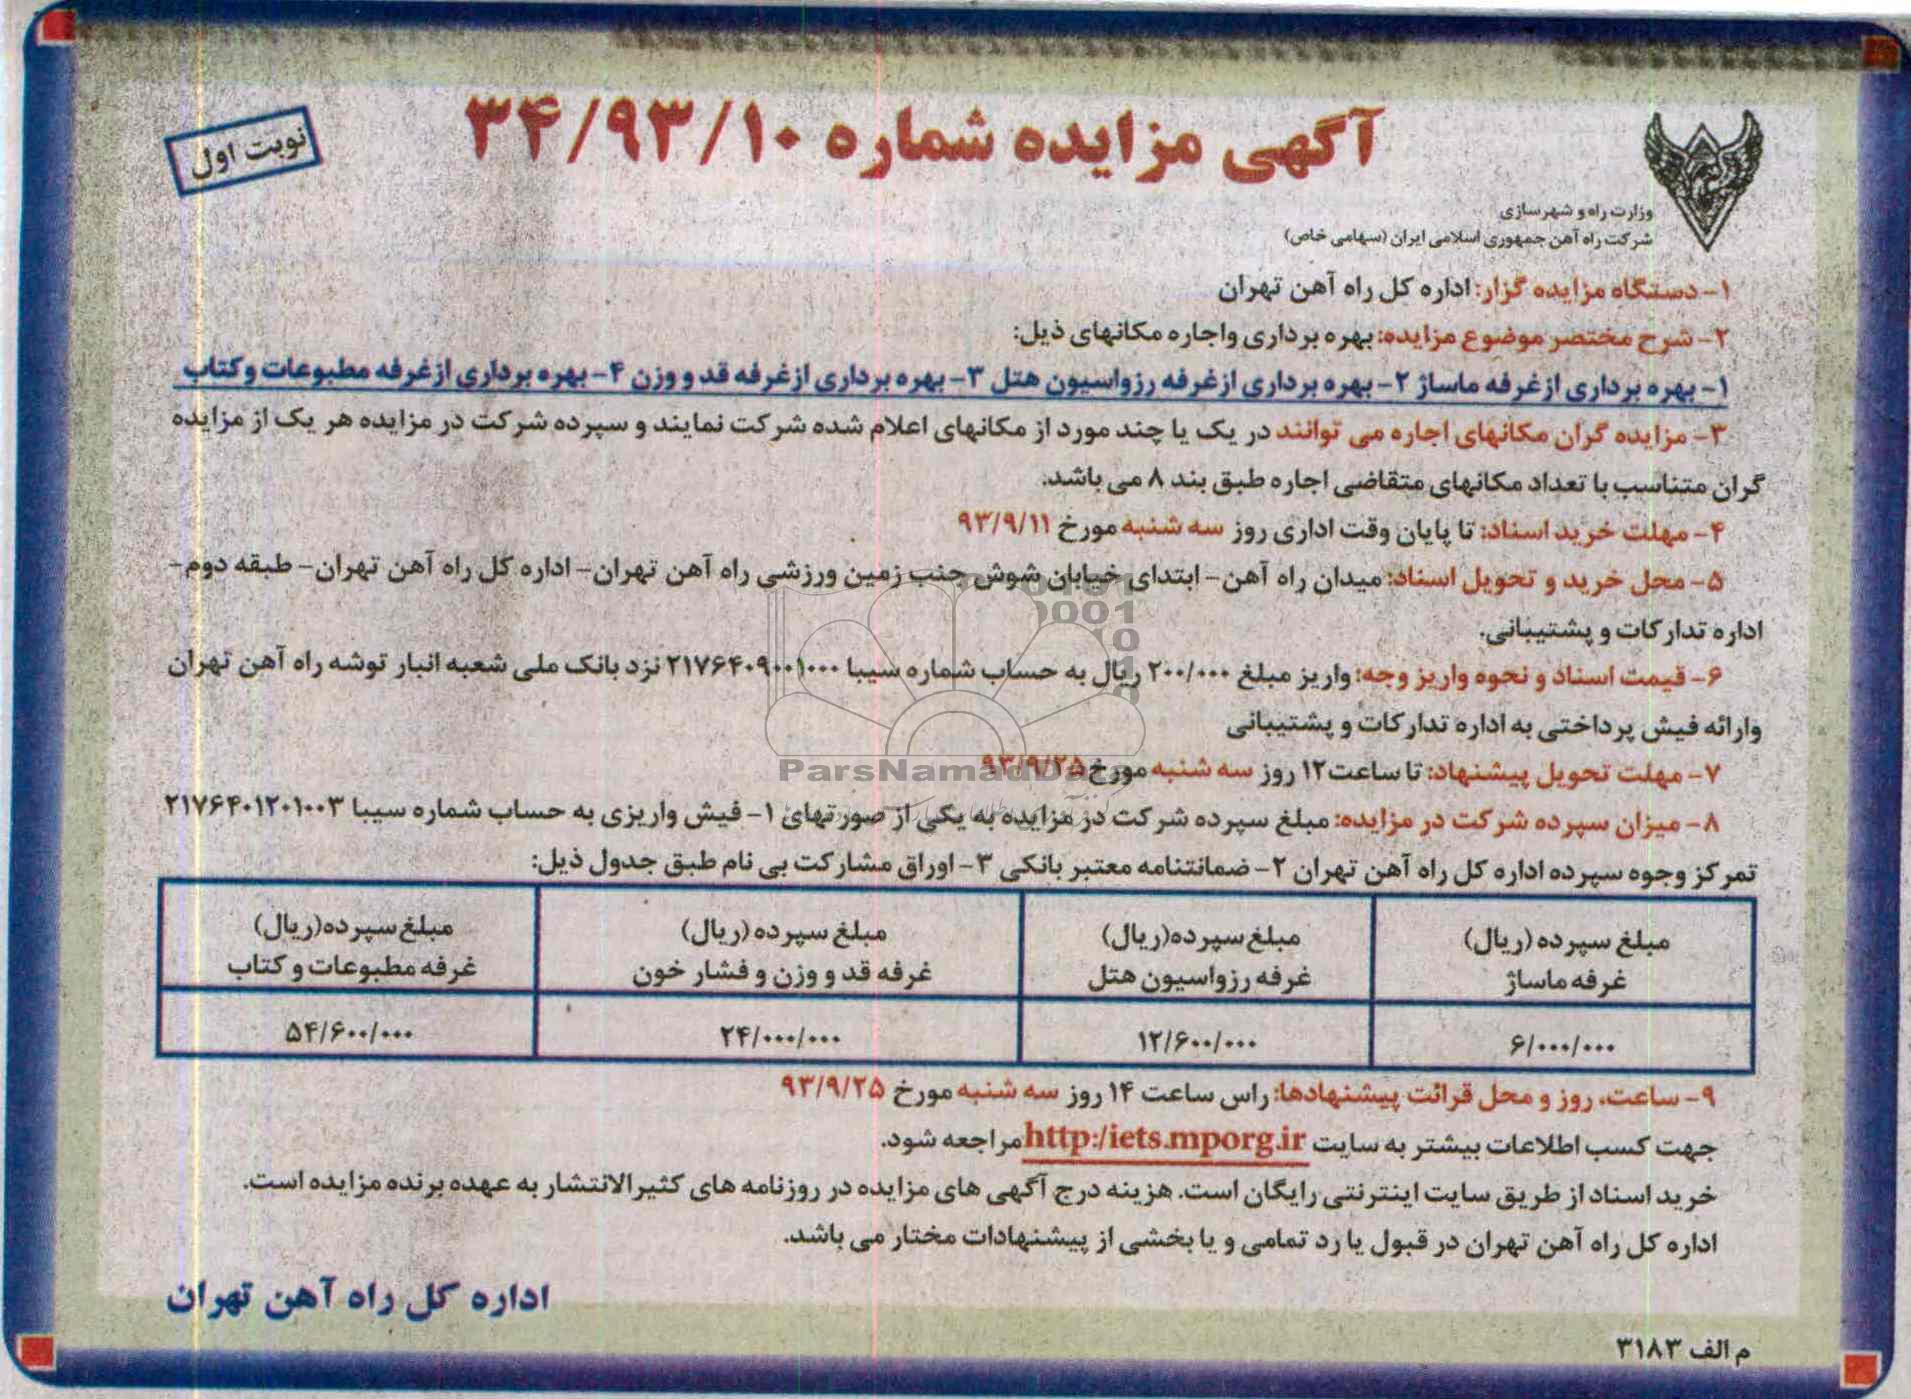 آگهی مزایده شماره ۳۴/۹۳/۱۰
نوبت اول
وزارت راه و شهرسازی
شرکت راه آهن جمهوری اسلامی ایران (سهامی خاص)
۱- دستگاه مزایده گزار: اداره کل راه آهن تهران
۲- شرح مختصر موضوع مزایده: بهره برداری واجاره مکانهای ذیل:
۱- بهره برداری از غرفه ماساژ ۲- بهره برداری از غرفه رزواسیون هتل ۳- بهره برداری از غرفه قد و وزن ۴- بهره برداری از غرفه مطبوعات و کتاب
۳- مزایده گران مکانهای اجاره می توانند در یک یا چند مورد از مکانهای اعلام شده شرکت نمایند و سپرده شرکت در مزایده هر یک از مزایده
گران متناسب با تعداد مکانهای متقاضی اجاره طبق بند ۸ می باشد.
۴- مهلت خرید اسناد: تا پایان وقت اداری روز سه شنبه مورخ ۹۳/۹/۱۱
۵- محل خرید و تحویل اسناد: میدان راه آهن- ابتدای خیابان شوش جنب زمین ورزشی راه آهن تهران- اداره کل راه آهن تهران- طبقه دوم-
اداره تدارکات و پشتیبانی.
۶- قیمت اسناد و نحوه واریز وجه: واریز مبلغ ۲۰۰/۰۰۰ ریال به حساب شماره سیبا ۲۱۷۶۴۰۹۰۰۱۰۰۰ نزد بانک ملی شعبه انبار توشه راه آهن تهران
وارائه فیش پرداختی به اداره تدارکات و پشتیبانی
۷- مهلت تحویل پیشنهاد: تا ساعت ۱۲ روز سه شنبه مورخ ۹۳/۹/۲۵
ParsNamadData
۸- میزان سپرده شرکت در مزایده: مبلغ سپرده شرکت در مزایده به یکی از صورتهای ۱- فیش واریزی به حساب شماره سیبا ۲۱۷۶۴۰۱۲۰۱۰۰۳
تمرکز وجوه سپرده اداره کل راه آهن تهران ۲- ضمانتنامه معتبر بانکی ۳- اوراق مشارکت بی نام طبق جدول ذیل:
مبلغ سپرده (ریال) مبلغ سپرده(ریال) مبلغ سپرده (ریال) مبلغ سپرده(ریال)
غرفه ماساژ غرفه رزواسیون هتل غرفه قد و وزن و فشار خون غرفه مطبوعات و کتاب
۶/۰۰۰/۰۰۰ ۱۲/۶۰۰/۰۰۰ ۲۴/۰۰۰/۰۰۰ ۵۴/۶۰۰/۰۰۰
۹- ساعت، روز و محل قرائت پیشنهادها: راس ساعت ۱۴ روز سه شنبه مورخ ۹۳/۹/۲۵
جهت کسب اطلاعات بیشتر به سایت http:/iets.mporg.ir مراجعه شود.
خرید اسناد از طریق سایت اینترنتی رایگان است. هزینه درج آگهی های مزایده در روزنامه های کثیرالانتشار به عهده برنده مزایده است.
اداره کل راه آهن تهران در قبول یا رد تمامی و یا بخشی از پیشنهادات مختار می باشد.
اداره کل راه آهن تهران
م الف ۳۱۸۳